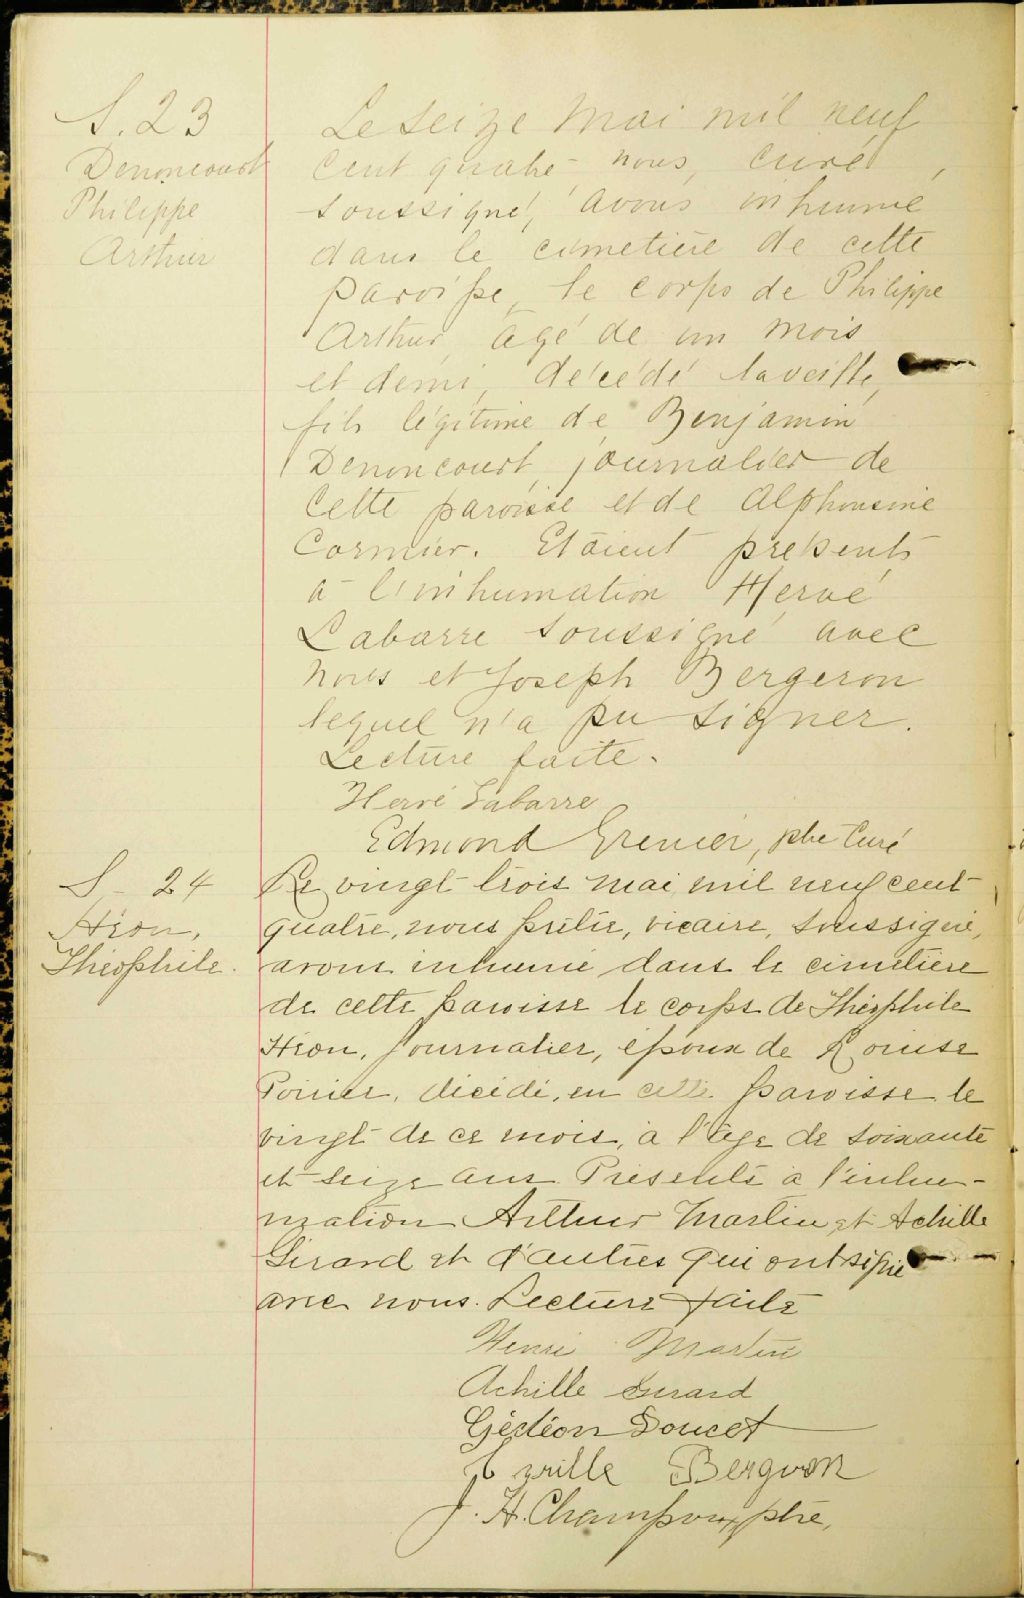 S. 23
Denoncourt
Philippe
Arthur
Le seize mai mil neuf
cent quatre, nous, curé,
soussigné, avons inhumé
dans le cimetière de cette
paroisse, le corps de Philippe
Arthur, âgé de un mois
et demi, décédé la veille,
fils légitime de Benjamin
Denoncourt, journalier de
cette paroisse et de Alphonsine
Cormier. Etaient présents
à l'inhumation Hervé
Labarre soussigné avec
nous et Joseph Bergeron
lequel n'a pu signer.
Lecture faite.
Hervé Labarre
Edmond Grenier, ptre curé
S - 24
Héon,
Théophile.
Le vingt trois mai mil neuf cent
quatre, nous prêtre, vicaire, soussigné,
avons inhumé dans le cimetière
de cette paroisse le corps de Théophile
Héon, journalier, époux de Louise
Poirier, décédé, en cette paroisse le
vingt de ce mois, à l'âge de soixante
et seize ans Présents à l'inhu-
mation Arthur Martin et Achille
Girard et d'autres qui ont signé
avec nous. Lecture faite
Henri Martin
Achille Girard
Gédéon Doucet
Bergeron
J. H. Champoux, ptre,